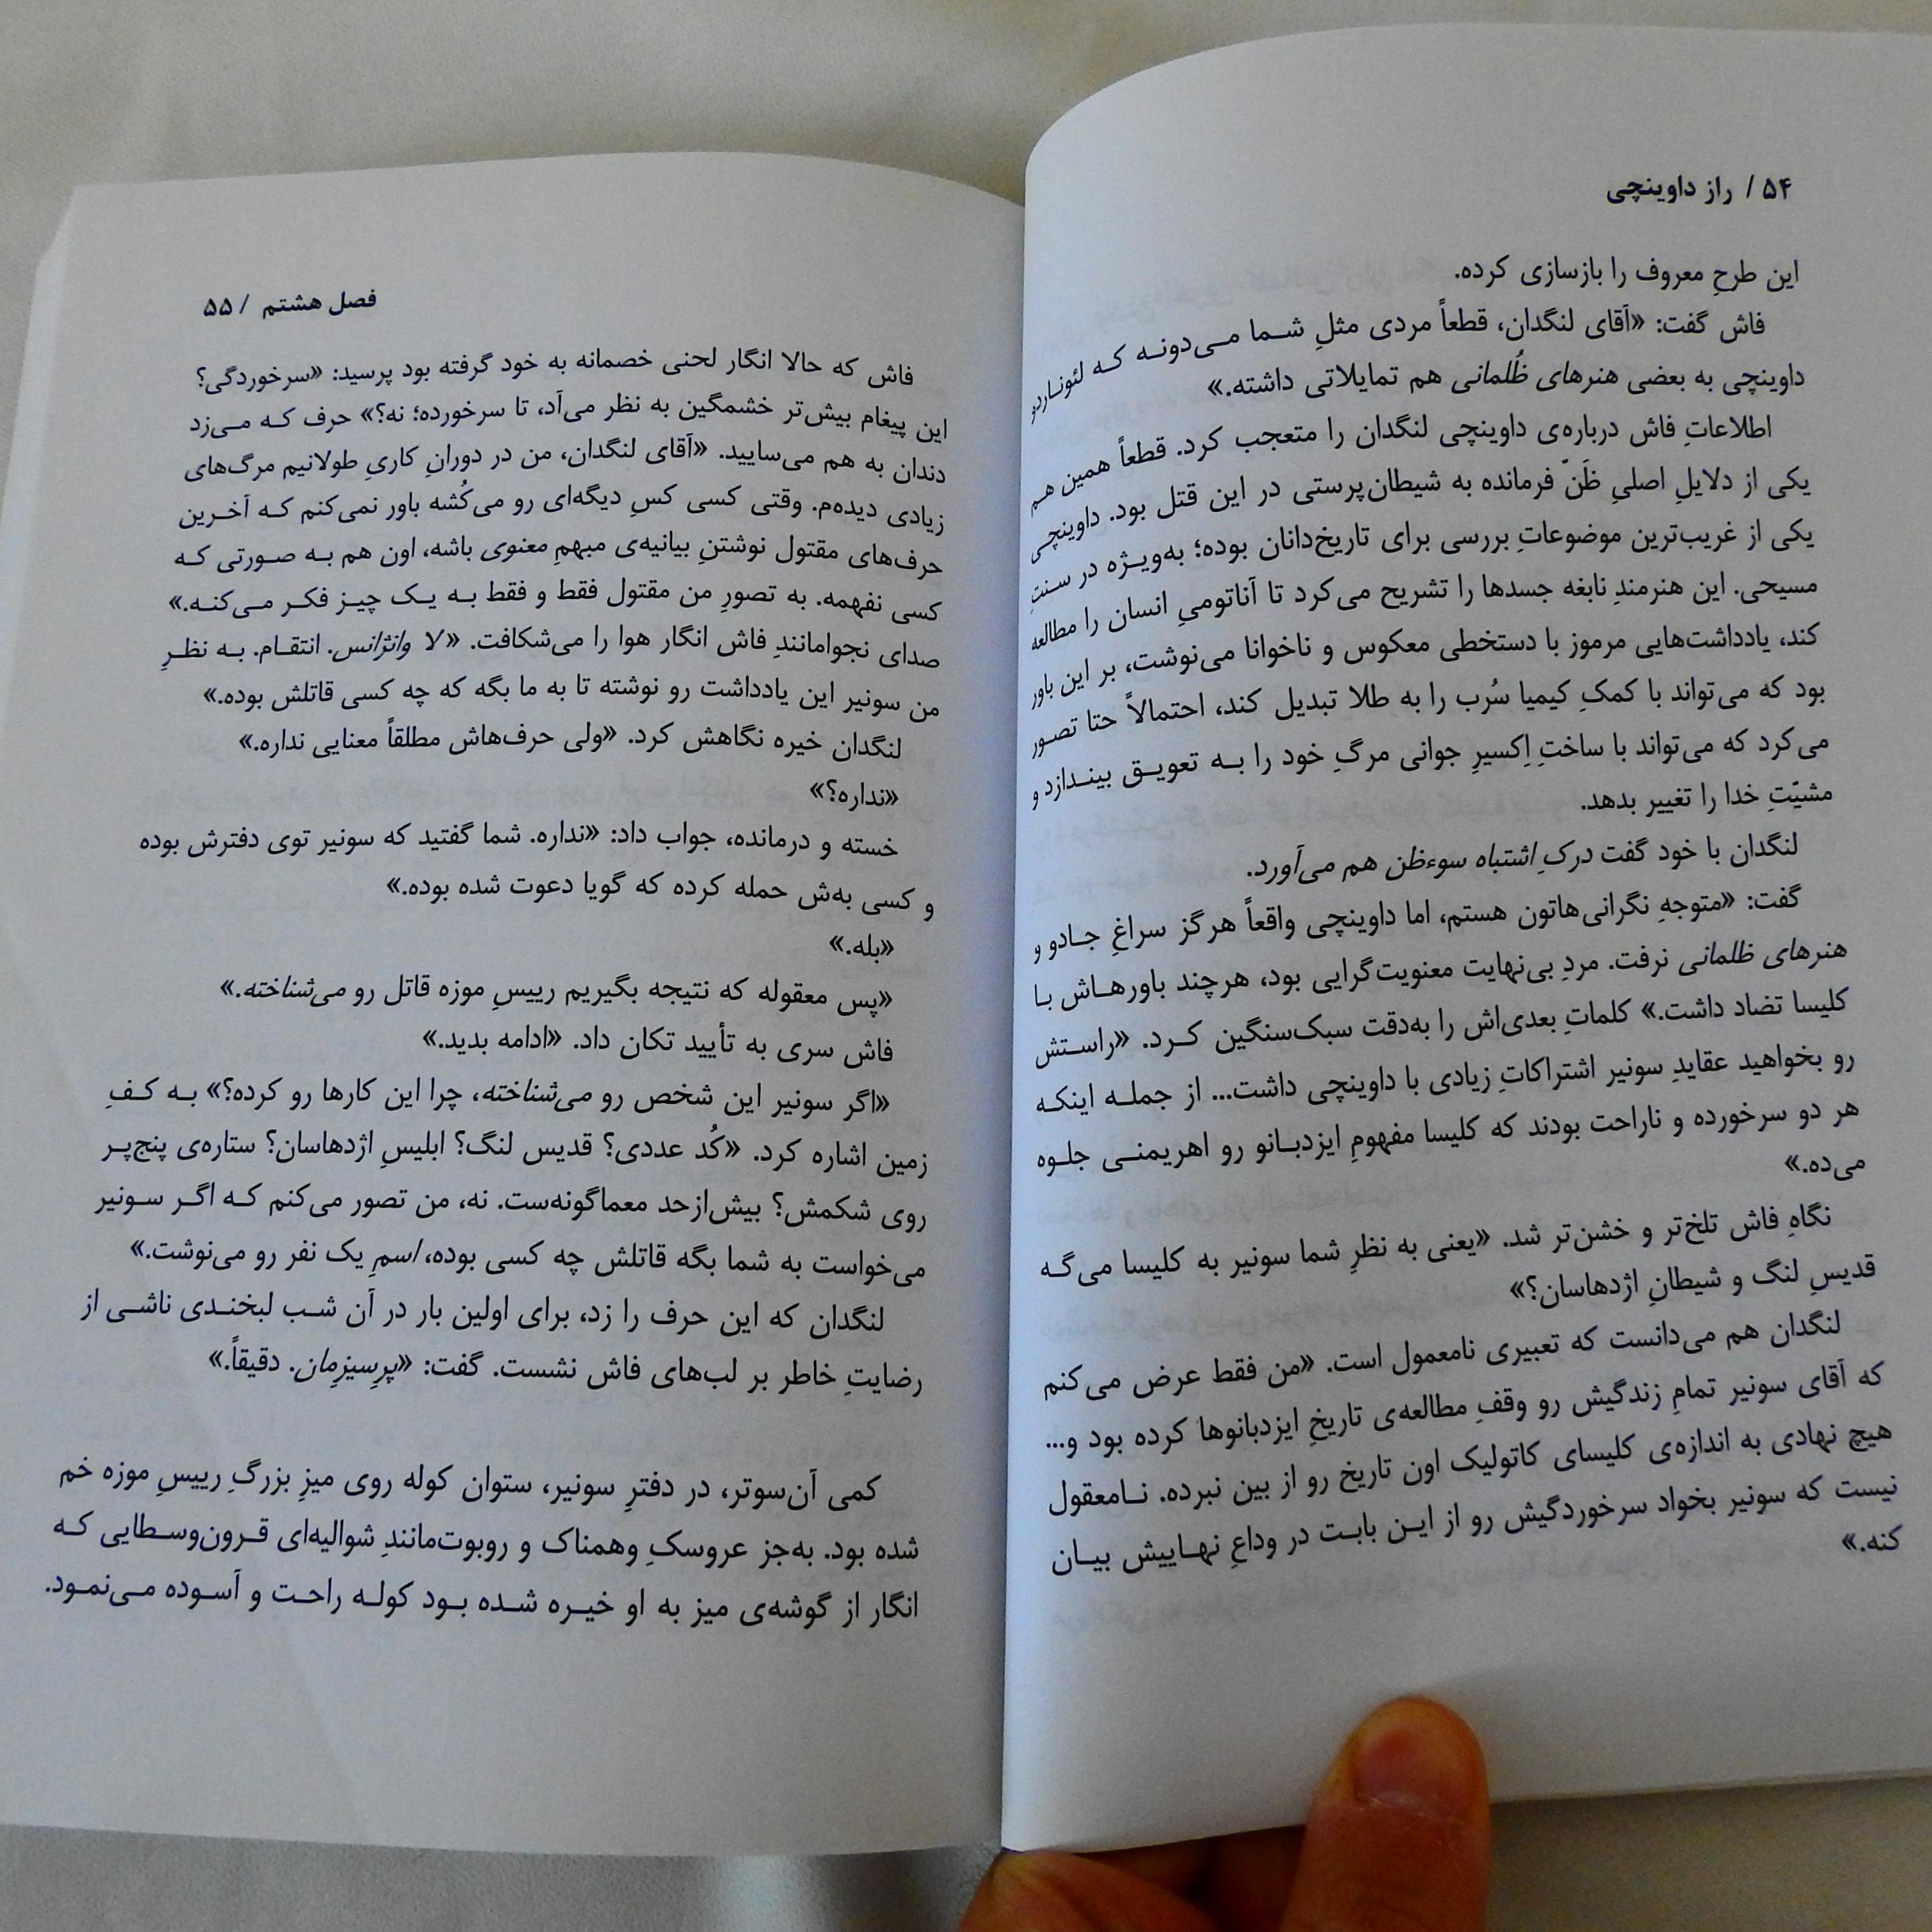 ۵۴ / راز داوینچی
این طرحِ معروف را بازسازی کرده.
فاش گفت: «آقای لنگدان، قطعاً مردی مثلِ شـما مـی‌دونـه کـه لئونـاردو
داوینچی به بعضی هنرهای ظُلمانی هم تمایلاتی داشته.»
اطلاعاتِ فاش درباره‌ی داوینچی لنگدان را متعجب کرد. قطعاً همین هـم
یکی از دلایلِ اصلیِ ظَنّ فرمانده به شیطان‌پرستی در این قتل بود. داوینچـی
یکی از غریب‌ترین موضوعاتِ بررسی برای تاریخ‌دانان بوده؛ به‌ویـژه در سنتِ
مسیحی. این هنرمندِ نابغه جسدها را تشریح می‌کرد تا آناتومیِ انسان را مطالعه
کند، یادداشت‌هایی مرموز با دستخطی معکوس و ناخوانا می‌نوشت، بر این باور
بود که می‌تواند با کمکِ کیمیا سُرب را به طلا تبدیل کند، احتمالاً حتا تصـور
می‌کرد که می‌تواند با ساختِ اِکسیرِ جوانی مرگِ خود را بـه تعویـق بینـدازد و
مشیّتِ خدا را تغییر بدهد.
لنگدان با خود گفت درکِ اشتباه سوءظن هم می‌آورد.
گفت: «متوجهِ نگرانی‌هاتون هستم، اما داوینچی واقعاً هرگز سراغِ جـادو و
هنرهای ظلمانی نرفت. مردِ بی‌نهایت معنویت‌گرایی بود، هرچند باورهـاش بـا
کلیسا تضاد داشت.» کلماتِ بعدی‌اش را به‌دقت سبک‌سنگین کـرد. «راسـتش
رو بخواهید عقایدِ سونیر اشتراکاتِ زیادی با داوینچی داشت... از جملـه اینکـه
هر دو سرخورده و ناراحت بودند که کلیسا مفهومِ ایزدبـانو رو اهریمنـی جلـوه
می‌ده.»
نگاهِ فاش تلخ‌تر و خشن‌تر شد. «یعنی به نظرِ شما سونیر به کلیسا می‌گـه
قدیسِ لنگ و شیطانِ اژدهاسان؟»
لنگدان هم می‌دانست که تعبیری نامعمول است. «من فقط عرض می‌کنم
که آقای سونیر تمامِ زندگیش رو وقفِ مطالعه‌ی تاریخِ ایزدبانوها کرده بود و...
هیچ نهادی به اندازه‌ی کلیسای کاتولیک اون تاریخ رو از بین نبرده. نـامعقول
نیست که سونیر بخواد سرخوردگیش رو از ایـن بابـت در وداعِ نهـاییش بیـان
کنه.»
فصل هشتم / ۵۵
فاش که حالا انگار لحنی خصمانه به خود گرفته بود پرسید: «سرخوردگی؟
این پیغام بیش‌تر خشمگین به نظر می‌آد، تا سرخورده؛ نه؟» حرف کـه مـی‌زد
دندان به هم می‌سایید. «آقای لنگدان، من در دورانِ کاریِ طولانیم مرگ‌های
زیادی دیده‌م. وقتی کسی کسِ دیگه‌ای رو می‌کُشه باور نمی‌کنم کـه آخـرین
حرف‌های مقتول نوشتنِ بیانیه‌ی مبهمِ معنوی باشه، اون هم بـه صـورتی کـه
کسی نفهمه. به تصورِ من مقتول فقط و فقط بـه یـک چیـز فکـر مـی‌کنـه.»
صدای نجوامانندِ فاش انگار هوا را می‌شکافت. «لا وانژانس. انتقـام. بـه نظـرِ
من سونیر این یادداشت رو نوشته تا به ما بگه که چه کسی قاتلش بوده.»
لنگدان خیره نگاهش کرد. «ولی حرف‌هاش مطلقاً معنایی نداره.»
«نداره؟»
خسته و درمانده، جواب داد: «نداره. شما گفتید که سونیر توی دفترش بوده
و کسی به‌ش حمله کرده که گویا دعوت شده بوده.»
«بله.»
«پس معقوله که نتیجه بگیریم رییسِ موزه قاتل رو می‌شناخته.»
فاش سری به تأیید تکان داد. «ادامه بدید.»
«اگر سونیر این شخص رو می‌شناخته، چرا این کارها رو کرده؟» بـه کـفِ
زمین اشاره کرد. «کُد عددی؟ قدیس لنگ؟ ابلیسِ اژدهاسان؟ ستاره‌ی پنج‌پـر
روی شکمش؟ بیش‌ازحد معماگونه‌ست. نه، من تصور می‌کنم کـه اگـر سـونیر
می‌خواست به شما بگه قاتلش چه کسی بوده، اسمِ یک نفر رو می‌نوشت.»
لنگدان که این حرف را زد، برای اولین بار در آن شـب لبخنـدی ناشـی از
رضایتِ خاطر بر لب‌های فاش نشست. گفت: «پرِسیزِمان. دقیقاً.»
کمی آن‌سوتر، در دفترِ سونیر، ستوان کوله روی میزِ بزرگِ رییسِ موزه خم
شده بود. به‌جز عروسکِ وهمناک و روبوت‌مانندِ شوالیه‌ای قـرون‌وسـطایی کـه
انگار از گوشه‌ی میز به او خیـره شـده بـود کولـه راحـت و آسـوده مـی‌نمـود.